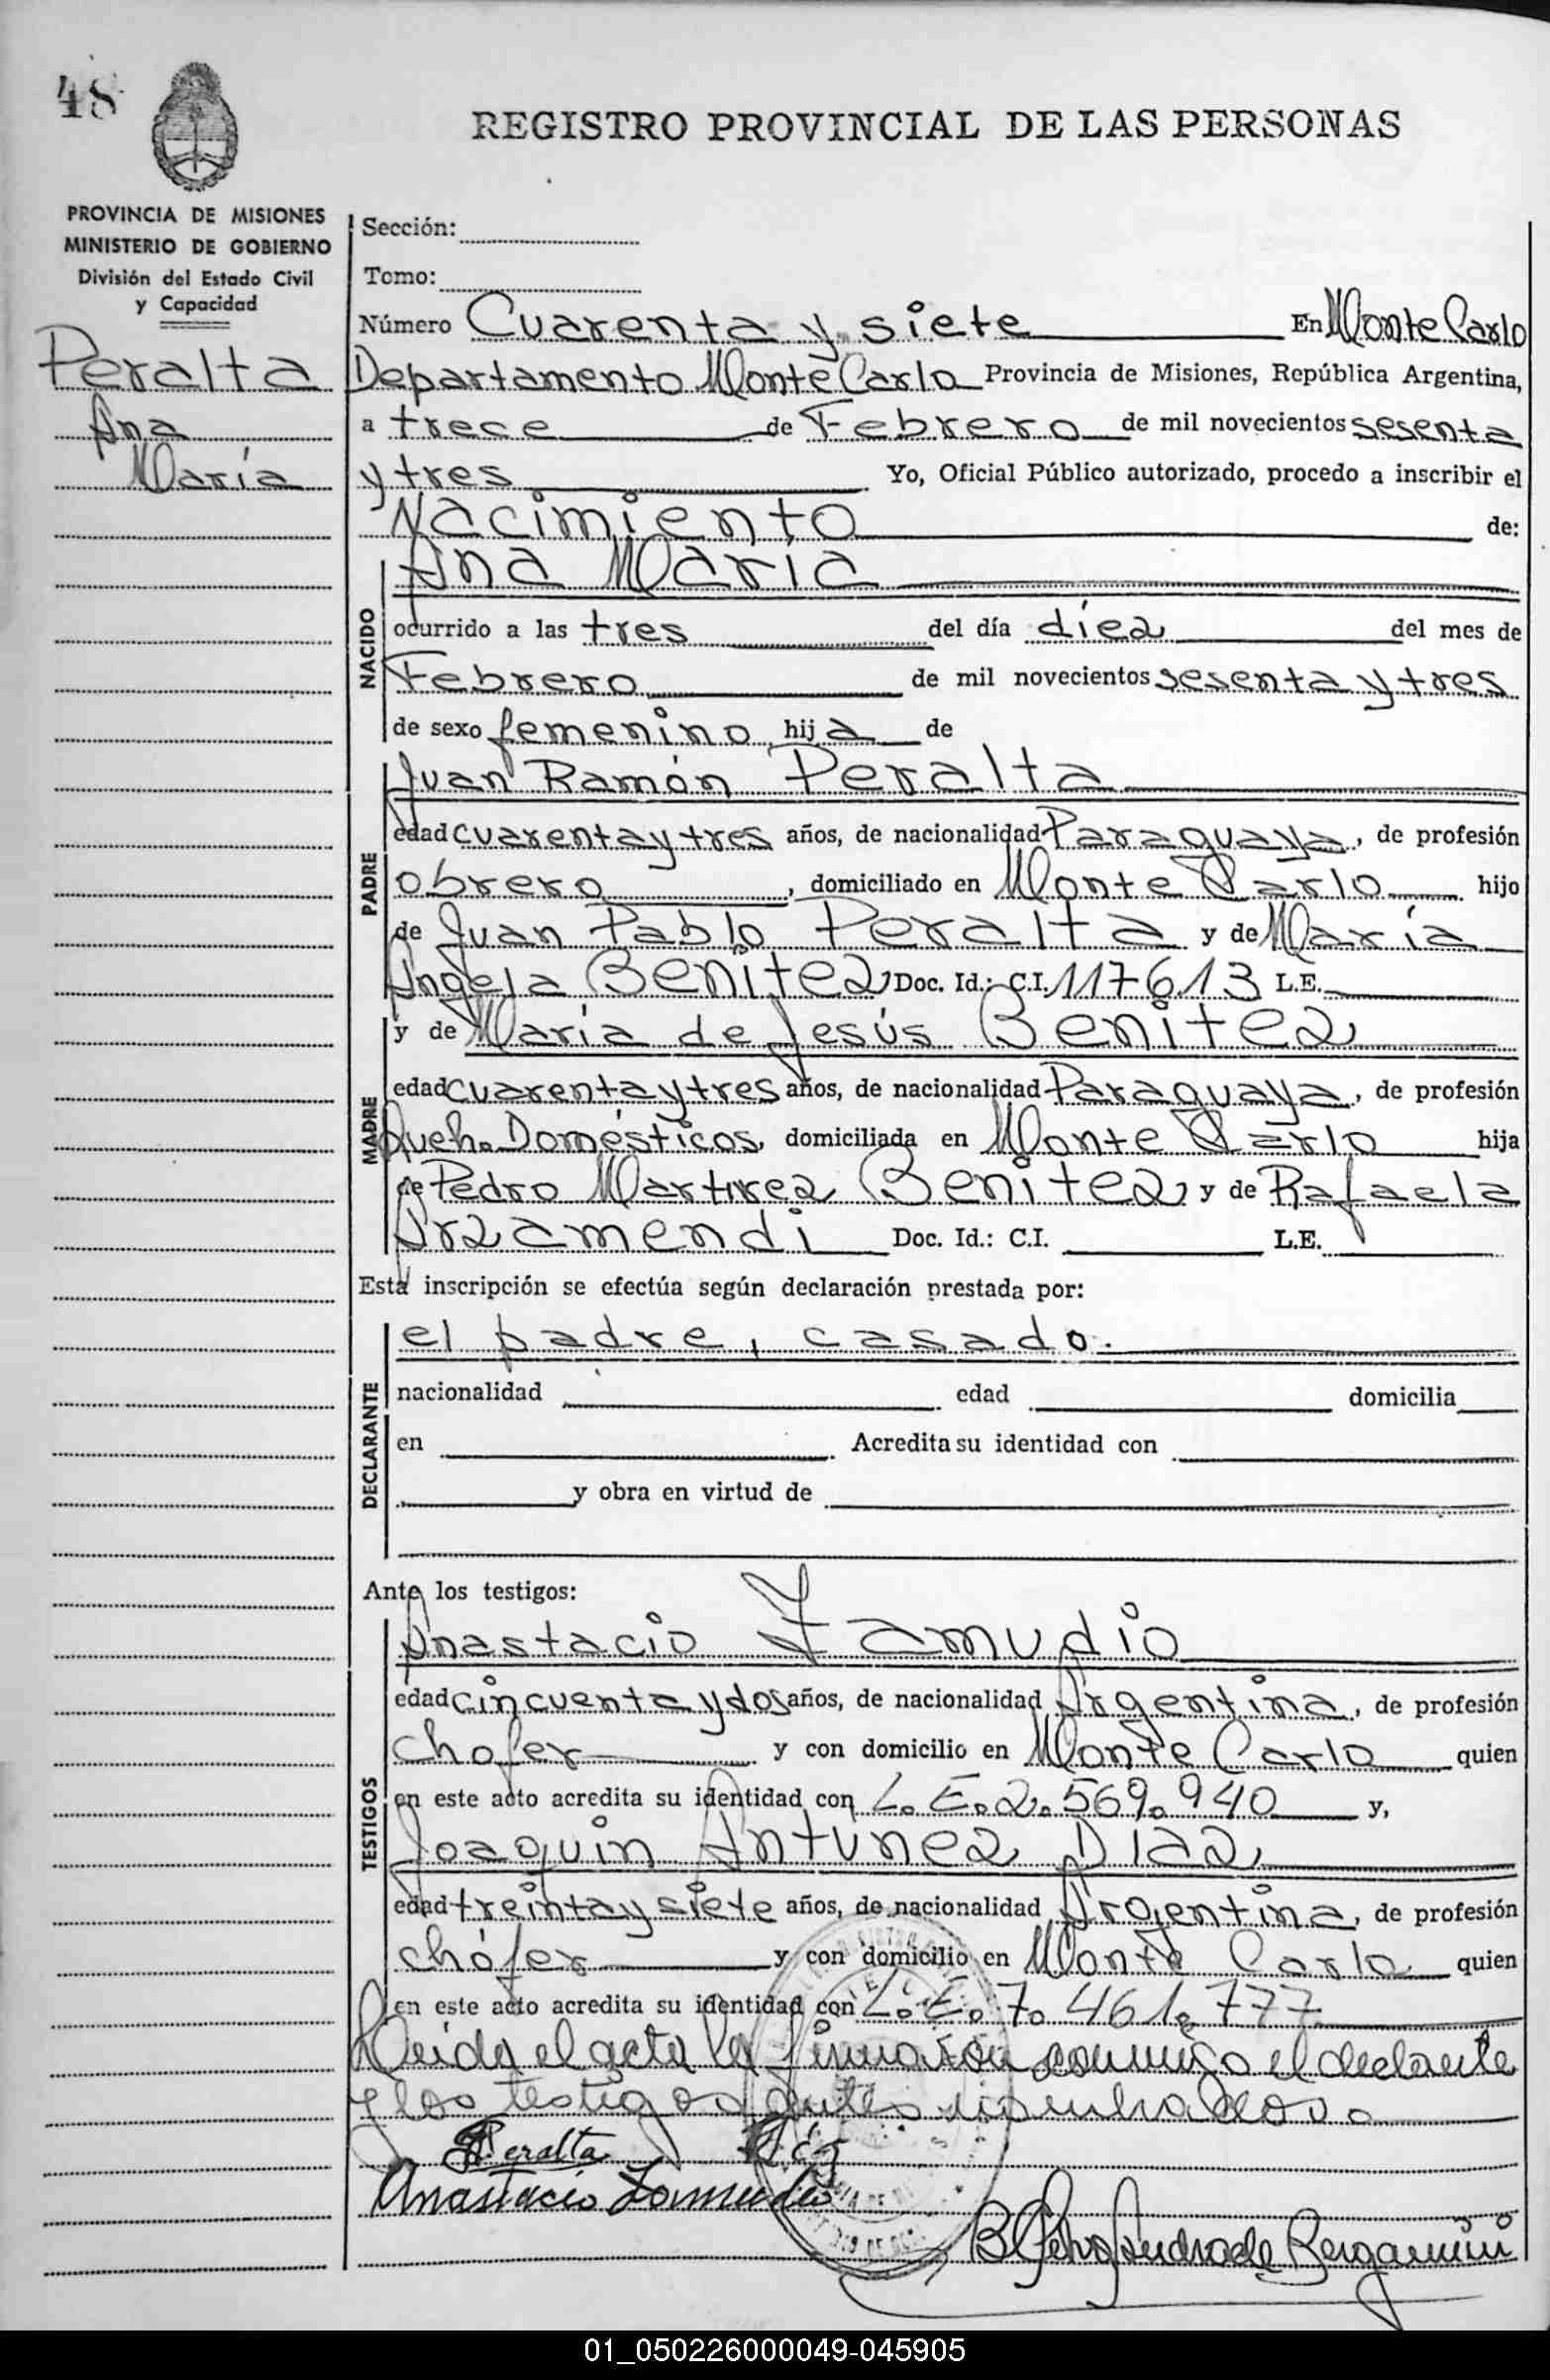 48
REGISTRO PROVINCIAL DE LAS PERSONAS
PROVINCIA DE MISIONES
MINISTERIO DE GOBIERNO
División del Estado Civil
y Capacidad
Peralta
Ana
María
Sección:
Tomo:
Número Cuarenta y siete En Monte Carlo
Departamento Monte Carlo Provincia de Misiones, República Argentina,
a trece de Febrero de mil novecientos sesenta
y tres Yo, Oficial Público autorizado, procedo a inscribir el
Nacimiento de:
NACIDO
Ana María
ocurrido a las tres del día díez del mes de
Febrero de mil novecientos sesenta y tres
de sexo femenino hija de
PADRE
Juan Ramón Peralta
edad cuarenta y tres años, de nacionalidad Paraguaya, de profesión
obrero, domiciliado en Monte Carlo hijo
de Juan Pablo Peralta y de María
Angela Benitez Doc. Id.: C.I. 117613 L.E.
MADRE
y de María de Jesús Benitez
edad cuarenta y tres años, de nacionalidad Paraguaya, de profesión
Queh. Domésticos, domiciliada en Monte Carlo hija
de Pedro Martirez Benitez y de Rafaela
Arzamendi Doc. Id.: C.I. L.E.
Esta inscripción se efectúa según declaración prestada por:
DECLARANTE
el padre, casado.
nacionalidad edad domicilia
en Acredita su identidad con
y obra en virtud de
Ante los testigos:
TESTIGOS
Anastacio Zamudio
edad cincuenta y dos años, de nacionalidad Argentina, de profesión
chofer y con domicilio en Monte Carlo quien
en este acto acredita su identidad con L. E. 2.569.940 y,
Joaquin Antunez Diaz
edad treinta y siete años, de nacionalidad Argentina, de profesión
chófer y con domicilio en Monte Carlo quien
en este acto acredita su identidad con L. E. 7.461.777
Leida el acta la firmaron conmigo el declarante
y los testigos antes nombrados.
Peralta
Anastacio Zamudio
Bergamini
01_050226000049-045905